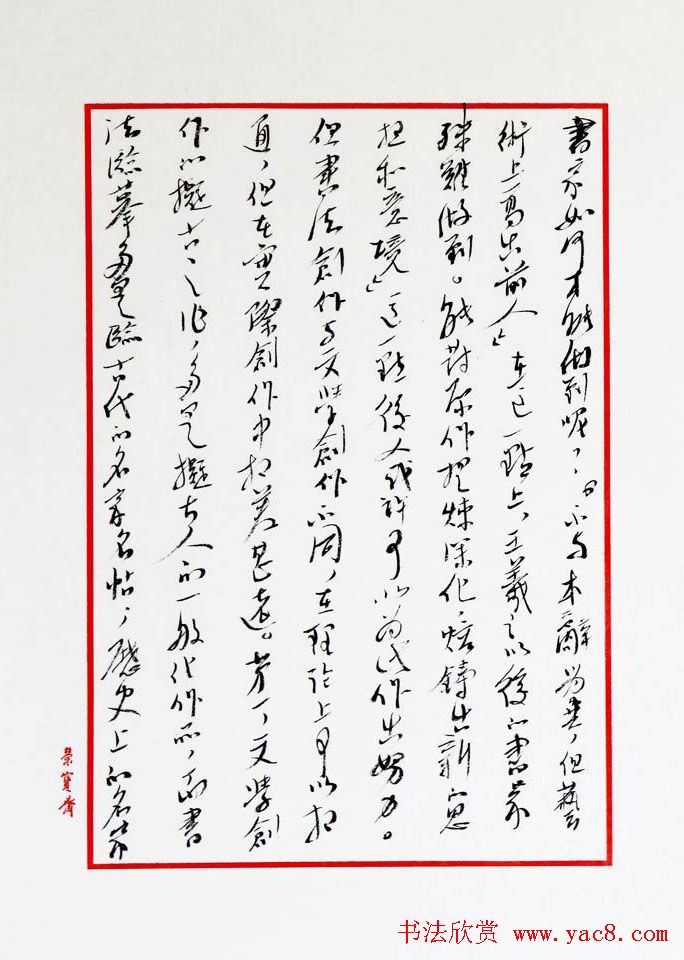 書家如何才能做到呢？「不与本辭為與，但藝
術上高出前人」在這一點上，王羲之以後的書家
殊難做到。能对原作提煉深化，熔鑄出新意
想和意境」這一點後人或許可以為此作出努力。
但書法創作与文學創作不同，在理論上可以相
通，但在實際創作中相差甚遠。第一，文學創
作的擬古之作，多是擬古人的一般代作品，而書
法臨摹多是臨古代的名家名帖，歷史上的名家
榮寶齋
书法欣赏 www.yac8.com